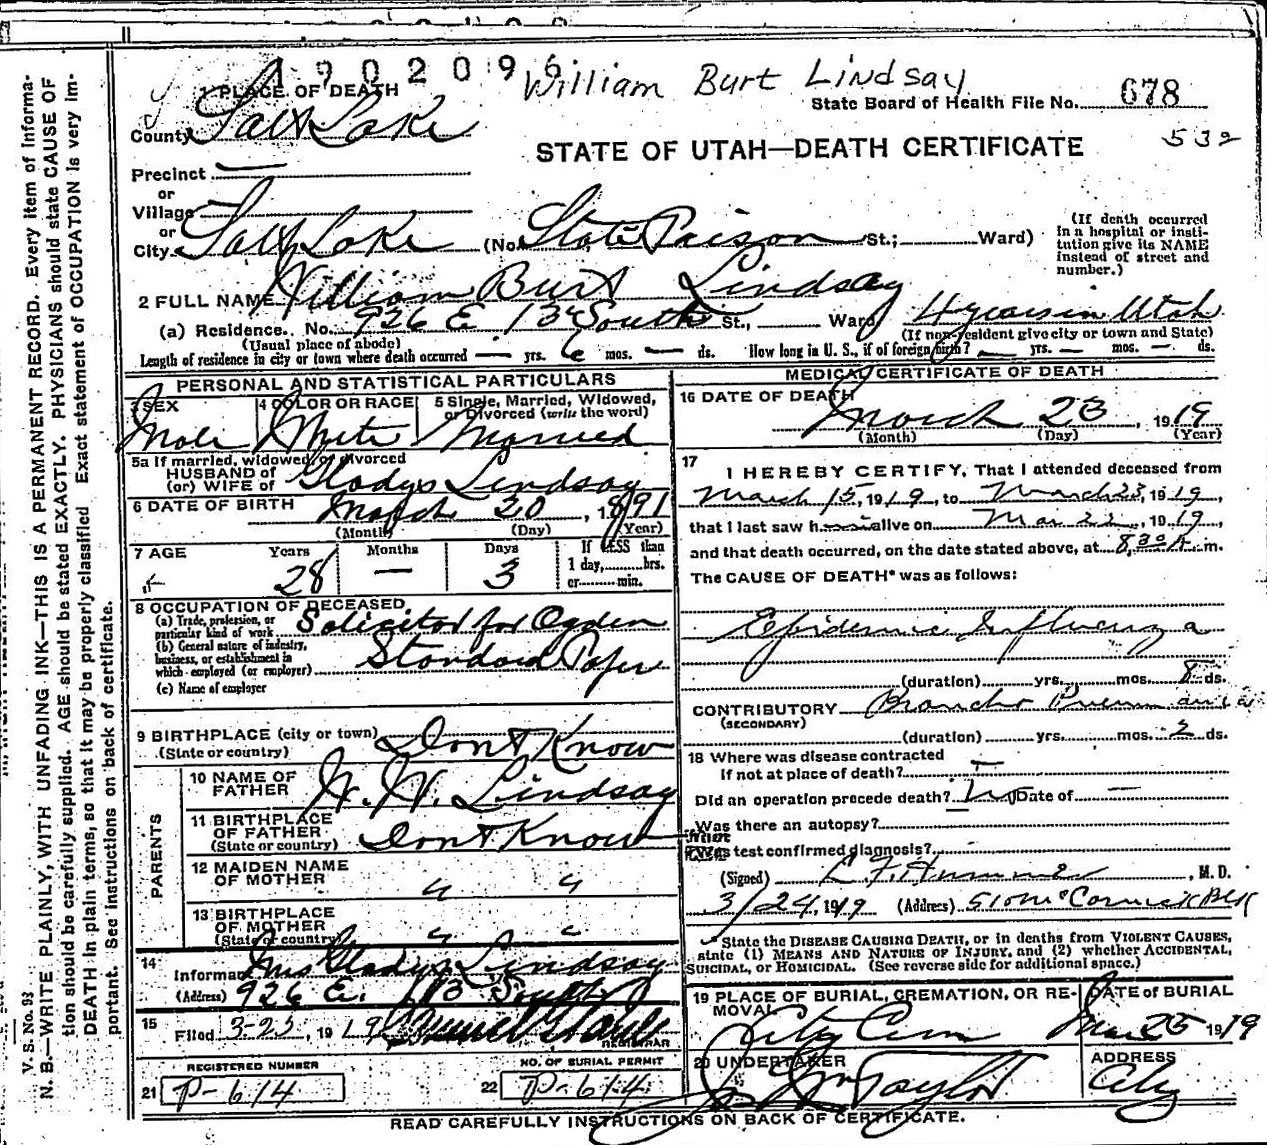 1902096
William Burt Lindsay
1 PLACE OF DEATH
State Board of Health File No. 678
County Salt Lake
532
STATE OF UTAH—DEATH CERTIFICATE
Precinct —
or
Village
or
City Salt Lake (No. State Prison St.; Ward)
(If death occurred in a hospital or institution give its NAME instead of street and number.)
2 FULL NAME William Burt Lindsay
(a) Residence. No. 926 E 13th South St., Ward, 4 years in Utah
(Usual place of abode) (If non-resident give city or town and State)
Length of residence in city or town where death occurred — yrs. 6 mos. — ds. How long in U. S., if of foreign birth? — yrs. — mos. — ds.
PERSONAL AND STATISTICAL PARTICULARS
3 SEX Male
4 COLOR OR RACE White
5 Single, Married, Widowed, or Divorced (write the word) Married
5a If married, widowed, or divorced
HUSBAND of
(or) WIFE of Gladys Lindsay
6 DATE OF BIRTH March 20, 1891
(Month) (Day) (Year)
7 AGE Years 28 Months — Days 3 If LESS than 1 day, hrs. or min.
8 OCCUPATION OF DECEASED
(a) Trade, profession, or particular kind of work Solicitor for Ogden
(b) General nature of industry, business, or establishment in which employed (or employer) Standard Paper
(c) Name of employer
9 BIRTHPLACE (city or town) Dont Know
(State or country)
PARENTS
10 NAME OF FATHER W. W. Lindsay
11 BIRTHPLACE OF FATHER Dont Know
(State or country)
12 MAIDEN NAME OF MOTHER " "
13 BIRTHPLACE OF MOTHER " "
(State or country)
14 Informant Mrs Gladys Lindsay
(Address) 926 E. 13 South
15 Filed 3-25, 1919
REGISTRAR
REGISTERED NUMBER
21 P-614
NO. OF BURIAL PERMIT
22 P-614
MEDICAL CERTIFICATE OF DEATH
16 DATE OF DEATH March 23, 1919
(Month) (Day) (Year)
17 I HEREBY CERTIFY, That I attended deceased from
March 15, 1919, to March 23, 1919,
that I last saw him alive on Mar 22, 1919,
and that death occurred, on the date stated above, at 8:30 A. m.
The CAUSE OF DEATH* was as follows:
Epidemic Influenza
(duration) yrs. mos. 8 ds.
CONTRIBUTORY Broncho Pneumonia
(SECONDARY)
(duration) yrs. mos. 2 ds.
18 Where was disease contracted
if not at place of death? —
Did an operation precede death? No Date of —
Was there an autopsy?
Was test confirmed diagnosis?
(Signed) , M. D.
3/24, 1919 (Address) 510 McCornick Blk
*State the DISEASE CAUSING DEATH, or in deaths from VIOLENT CAUSES,
state (1) MEANS AND NATURE OF INJURY, and (2) whether ACCIDENTAL,
SUICIDAL, or HOMICIDAL. (See reverse side for additional space.)
19 PLACE OF BURIAL, CREMATION, OR REMOVAL City Cem
DATE of BURIAL Mar 25 1919
20 UNDERTAKER Taylor
ADDRESS City
READ CAREFULLY INSTRUCTIONS ON BACK OF CERTIFICATE.
V. S. No. 93
N. B.—WRITE PLAINLY, WITH UNFADING INK—THIS IS A PERMANENT RECORD. Every item of information should be carefully supplied. AGE should be stated EXACTLY. PHYSICIANS should state CAUSE OF DEATH in plain terms, so that it may be properly classified. Exact statement of OCCUPATION is very important. See instructions on back of certificate.